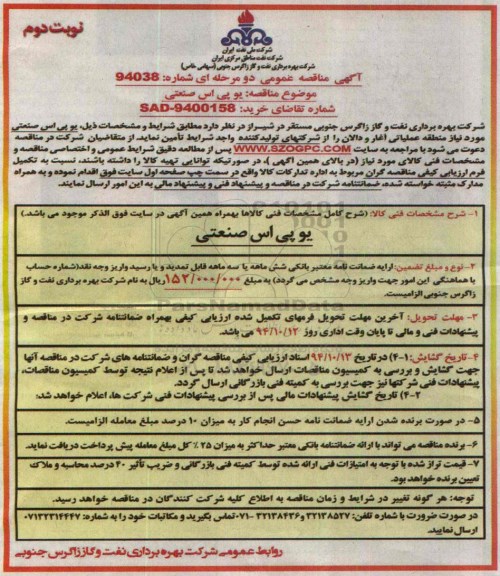 نوبت دوم
شرکت ملی نفت ایران
شرکت نفت مناطق مرکزی ایران
شرکت بهره برداری نفت و گاز زاگرس جنوبی (سهامی خاص)
آگهی مناقصه عمومی دو مرحله ای شماره: 94038
موضوع مناقصه: یو پی اس صنعتی
شماره تقاضای خرید: SAD-9400158
شرکت بهره برداری نفت و گاز زاگرس جنوبی مستقر در شیراز در نظر دارد مطابق شرایط و مشخصات ذیل، یو پی اس صنعتی
مورد نیاز منطقه عملیاتی آغار و دالان را از شرکتهای تولیدکننده واجد شرایط تأمین نماید. از متقاضیان شرکت در مناقصه
دعوت می شود با مراجعه به سایت WWW.SZOGPC.COM پس از مطالعه دقیق شرایط عمومی و اختصاصی مناقصه و
مشخصات فنی کالای مورد نیاز (در بالای همین آگهی)، در صورتیکه توانایی تهیه کالا را داشته باشند، نسبت به تکمیل
فرم ارزیابی کیفی مناقصه گران مربوط به اداره تدارکات کالا واقع در سمت چپ صفحه اول سایت فوق اقدام نموده و به همراه
مدارک مثبته خواسته شده، ضمانتنامه شرکت در مناقصه و پیشنهاد فنی و پیشنهاد مالی به این امور ارسال نمایند.
۱- شرح مشخصات فنی کالا: (شرح کامل مشخصات فنی کالاها بهمراه همین آگهی در سایت فوق الذکر موجود می باشد.)
یو پی اس صنعتی
۲- نوع و مبلغ تضمین: ارایه ضمانت نامه معتبر بانکی شش ماهه یا سه ماهه قابل تمدید و یا رسید واریز وجه نقد(شماره حساب
با هماهنگی این امور جهت واریز وجه مشخص می گردد) به مبلغ ۱۵۲/۰۰۰/۰۰۰ریال به نام شرکت بهره برداری نفت و گاز
زاگرس جنوبی الزامیست.
ParsNamadData
۳- مهلت تحویل: آخرین مهلت تحویل فرمهای تکمیل شده ارزیابی کیفی بهمراه ضمانتنامه شرکت در مناقصه و
پیشنهادات فنی و مالی تا پایان وقت اداری روز ۹۴/۱۰/۱۲ می باشد.
۴- تاریخ گشایش: ۱-۴) در تاریخ ۹۴/۱۰/۱۳ اسناد ارزیابی کیفی مناقصه گران و ضمانتنامه های شرکت در مناقصه آنها
جهت گشایش و بررسی به کمیسیون مناقصات ارسال خواهد شد تا پس از اعلام نتیجه توسط کمیسیون مناقصات،
پیشنهادات فنی شرکتها نیز جهت بررسی به کمیته فنی بازرگانی ارسال گردد.
۲-۴) تاریخ گشایش پیشنهادات مالی پس از بررسی پیشنهادات فنی شرکت ها، اعلام خواهد شد.
۵- در صورت برنده شدن ارایه ضمانت نامه حسن انجام کار به میزان ۱۰ درصد مبلغ معامله الزامیست.
۶- برنده مناقصه می تواند با ارائه ضمانتنامه بانکی معتبر حداکثر به میزان ۲۵ ٪ کل مبلغ معامله پیش پرداخت دریافت نماید.
۷- قیمت تراز شده با توجه به امتیازات فنی ارائه شده توسط کمیته فنی بازرگانی و ضریب تأثیر ۴۰ درصد محاسبه و ملاک
تعیین برنده خواهد بود.
توجه: هر گونه تغییر در شرایط و زمان مناقصه به اطلاع کلیه شرکت کنندگان در مناقصه خواهد رسید.
در صورت ضرورت با شماره تلفن: ۳۲۱۳۸۵۲۷ و ۳۲۱۳۸۴۳۶ -۰۷۱تماس بگیرید و مکاتبات خود را به شماره: ۰۷۱۳۲۳۱۴۴۴۷
ارسال نمایید.
روابط عمومی شرکت بهره برداری نفت و گاز زاگرس جنوبی